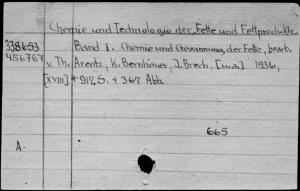 Chemie und Technologie der Fette und Fettprodukte
338693 Band 1. Chemie und Gewinnung der Fette, bearb.
456767 v. Th. Arentz, K. Bernhauer, J. Brech, [u.a.] 1936,
[XVIII] + 917 S. + 367 Abb.
665
A.